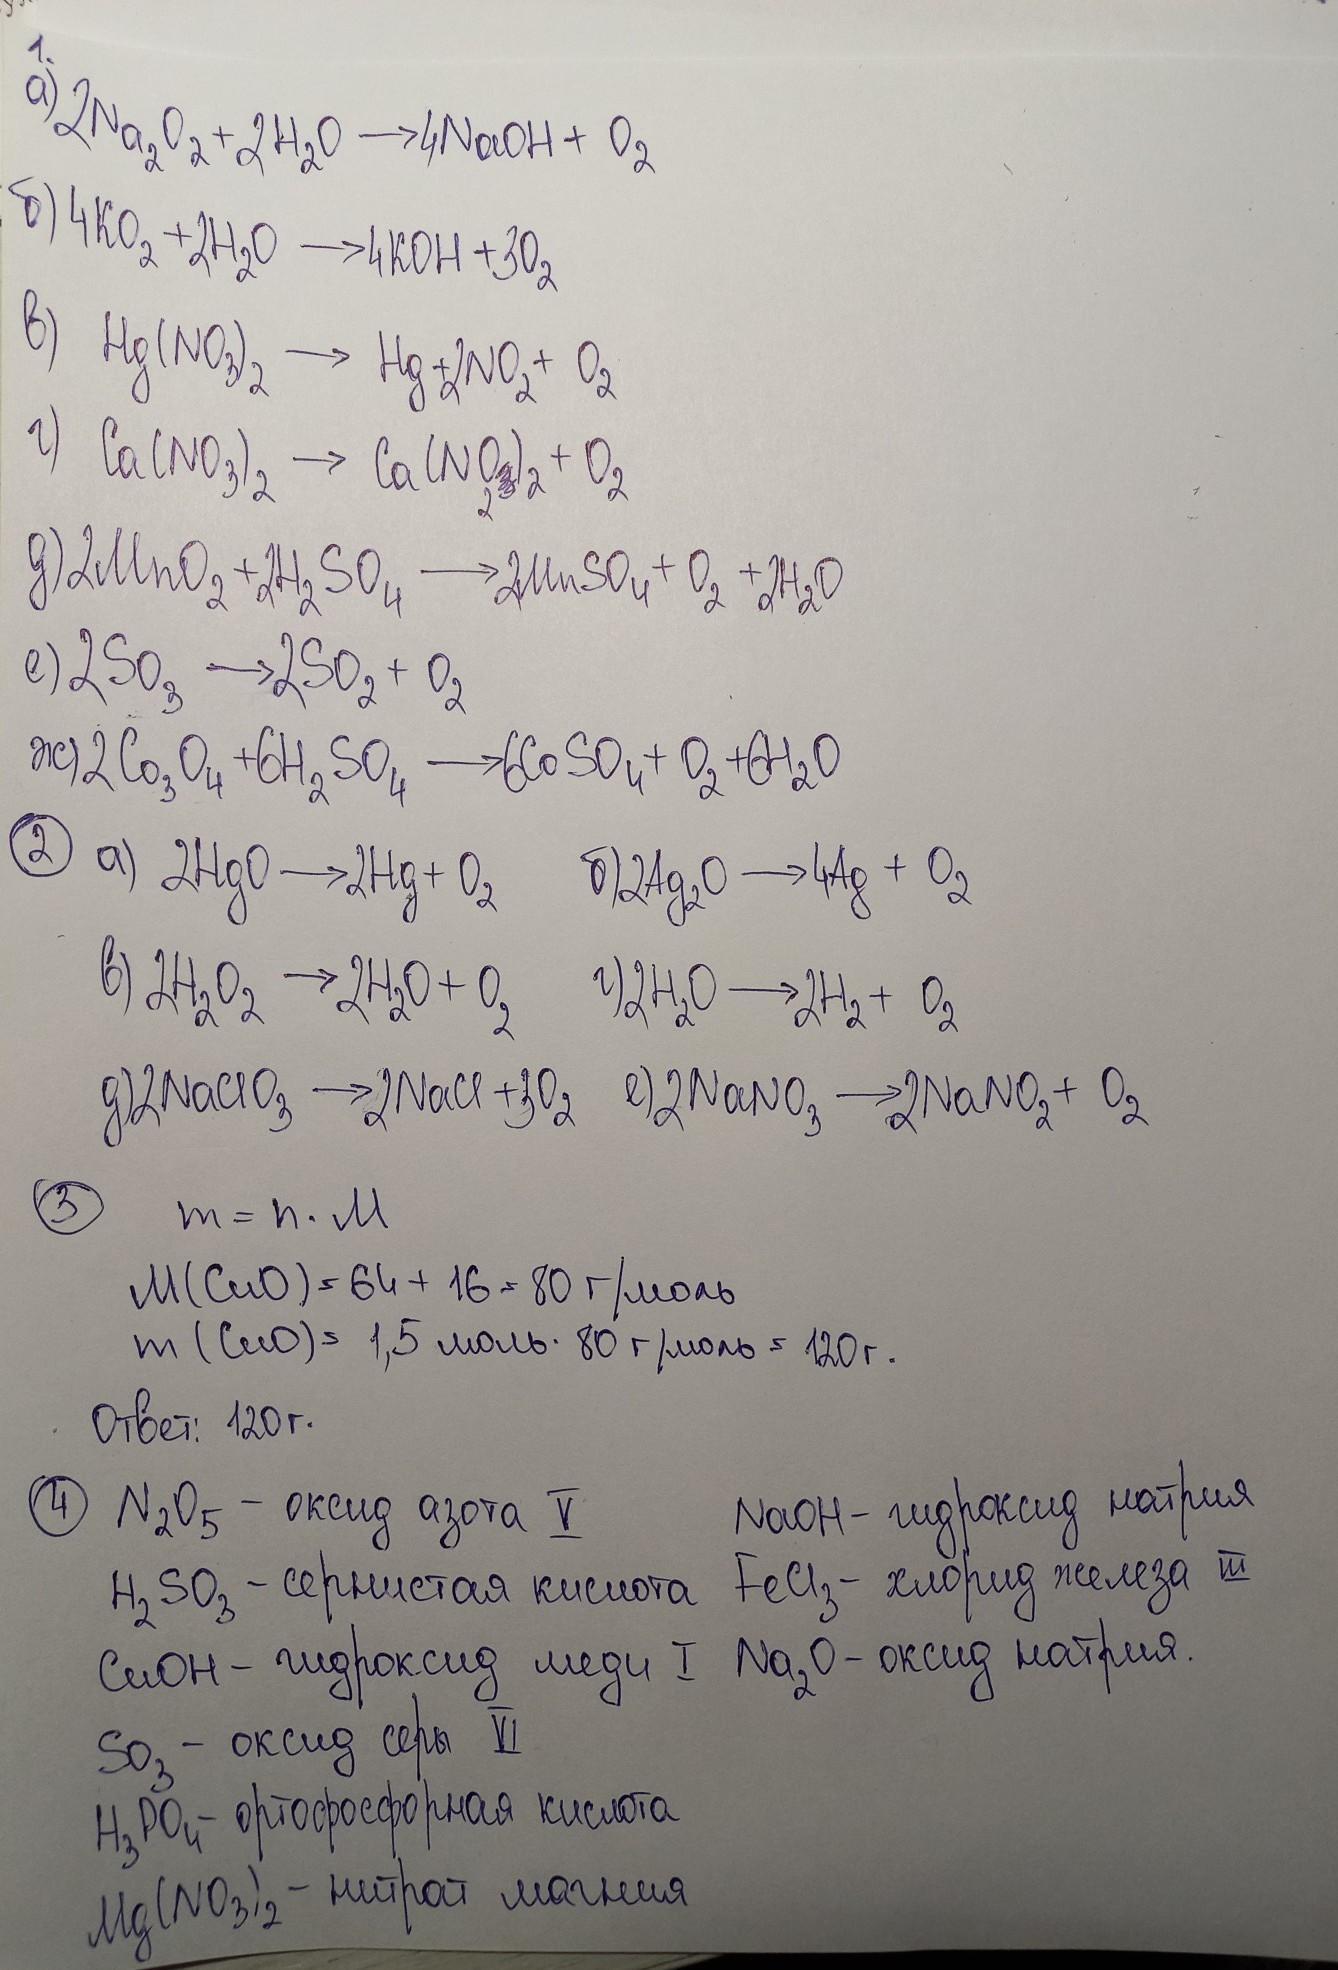 1.
а) 2Na₂O₂ + 2H₂O → 4NaOH + O₂
б) 4KO₂ + 2H₂O → 4KOH + 3O₂
в) Hg(NO₃)₂ → Hg + 2NO₂ + O₂
г) Ca(NO₃)₂ → Ca(NO₂)₂ + O₂
д) 2MnO₂ + 2H₂SO₄ → 2MnSO₄ + O₂ + 2H₂O
е) 2SO₃ → 2SO₂ + O₂
ж) 2Co₃O₄ + 6H₂SO₄ → 6CoSO₄ + O₂ + 6H₂O
2 а) 2HgO → 2Hg + O₂ б) 2Ag₂O → 4Ag + O₂
в) 2H₂O₂ → 2H₂O + O₂ г) 2H₂O → 2H₂ + O₂
д) 2NaClO₃ → 2NaCl + 3O₂ е) 2NaNO₃ → 2NaNO₂ + O₂
3 m = n · M
M(CuO) = 64 + 16 = 80 г/моль
m(CuO) = 1,5 моль · 80 г/моль = 120 г.
Ответ: 120 г.
4 N₂O₅ – оксид азота V NaOH – гидроксид натрия
H₂SO₃ – сернистая кислота FeCl₃ – хлорид железа III
CuOH – гидроксид меди I Na₂O – оксид натрия.
SO₃ – оксид серы VI
H₃PO₄ – ортофосфорная кислота
Mg(NO₃)₂ – нитрат магния